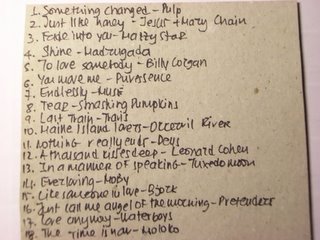 1. Something changed - Pulp
2. Just like honey - Jesus + Mary Chain
3. Fade into you - Mazzy Star
4. Shine - Madrugada
5. To love somebody - Billy Corgan
6. You move me - Puressence
7. Endlessly - Muse
8. Tear - Smashing Pumpkins
9. Last Train - Travis
10. Maine Island lovers - Okkervil River
11. Nothing really ends - Deus
12. A thousand kisses deep - Leonard Cohen
13. In a manner of speaking - Tuxedomoon
14. Everloving - Moby
15. Like someone in love - Bjork
16. Just call me angel of the morning - Pretenders
17. Love anyway - Waterboys
18. The Time is now - Moloko